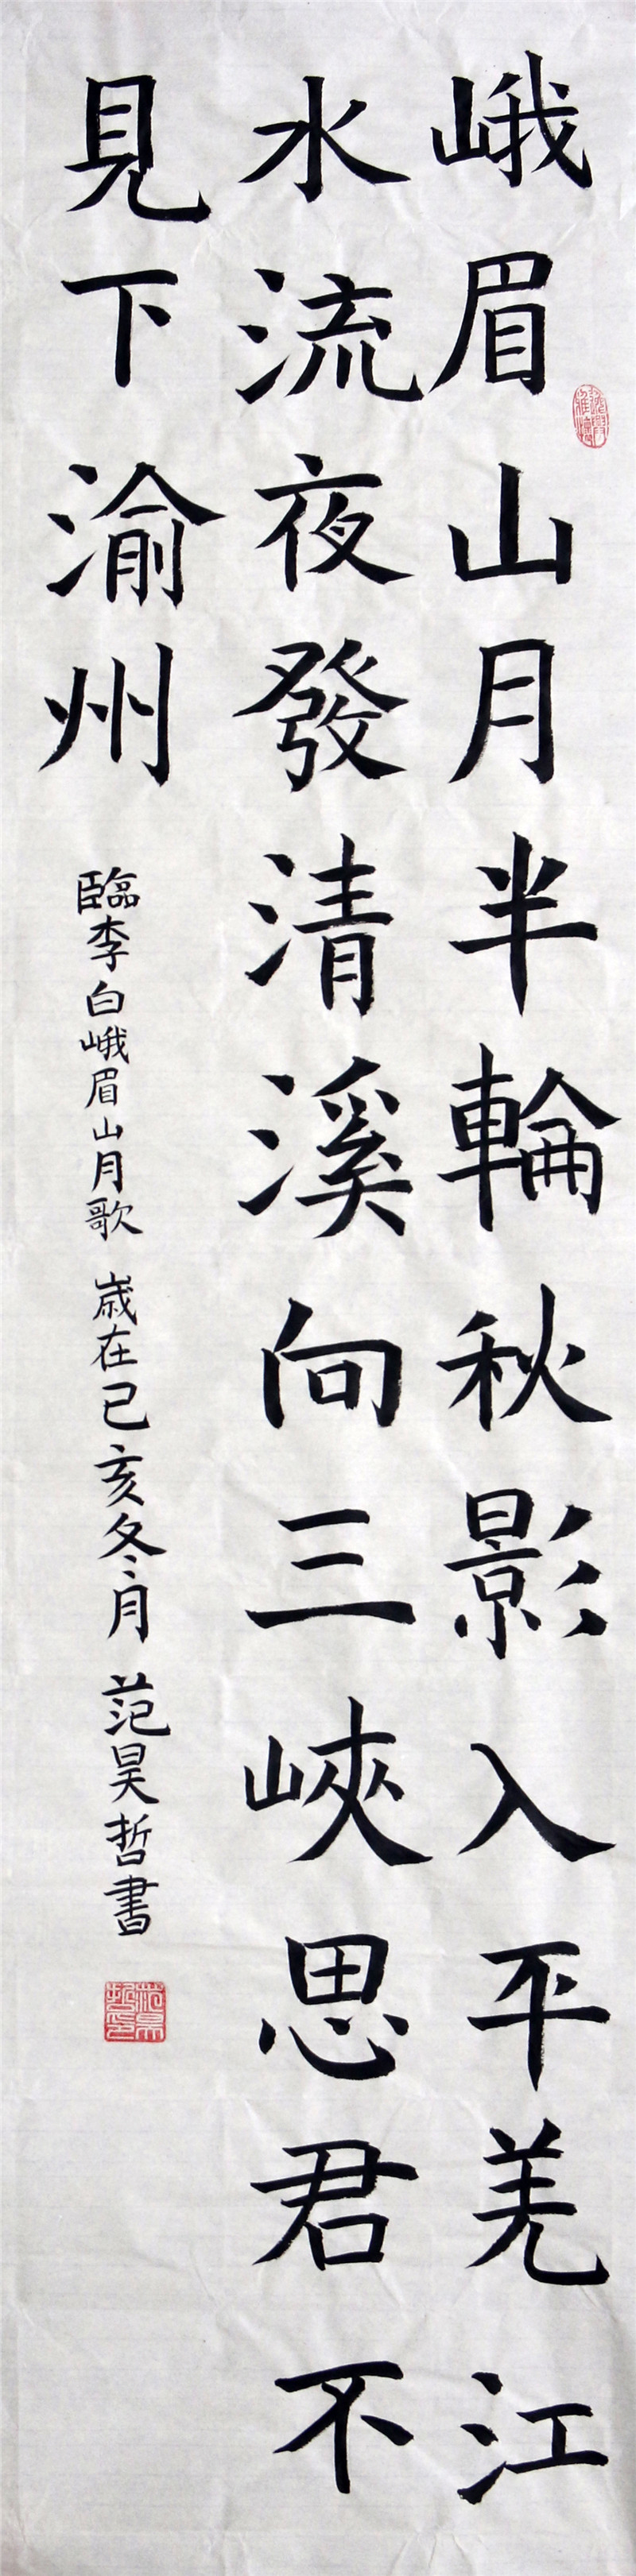 峨眉山月半輪秋影入平羌江
水流夜發清溪向三峽思君不
見下渝州
臨李白峨眉山月歌 歲在己亥冬月 范昊哲書
范昊哲印